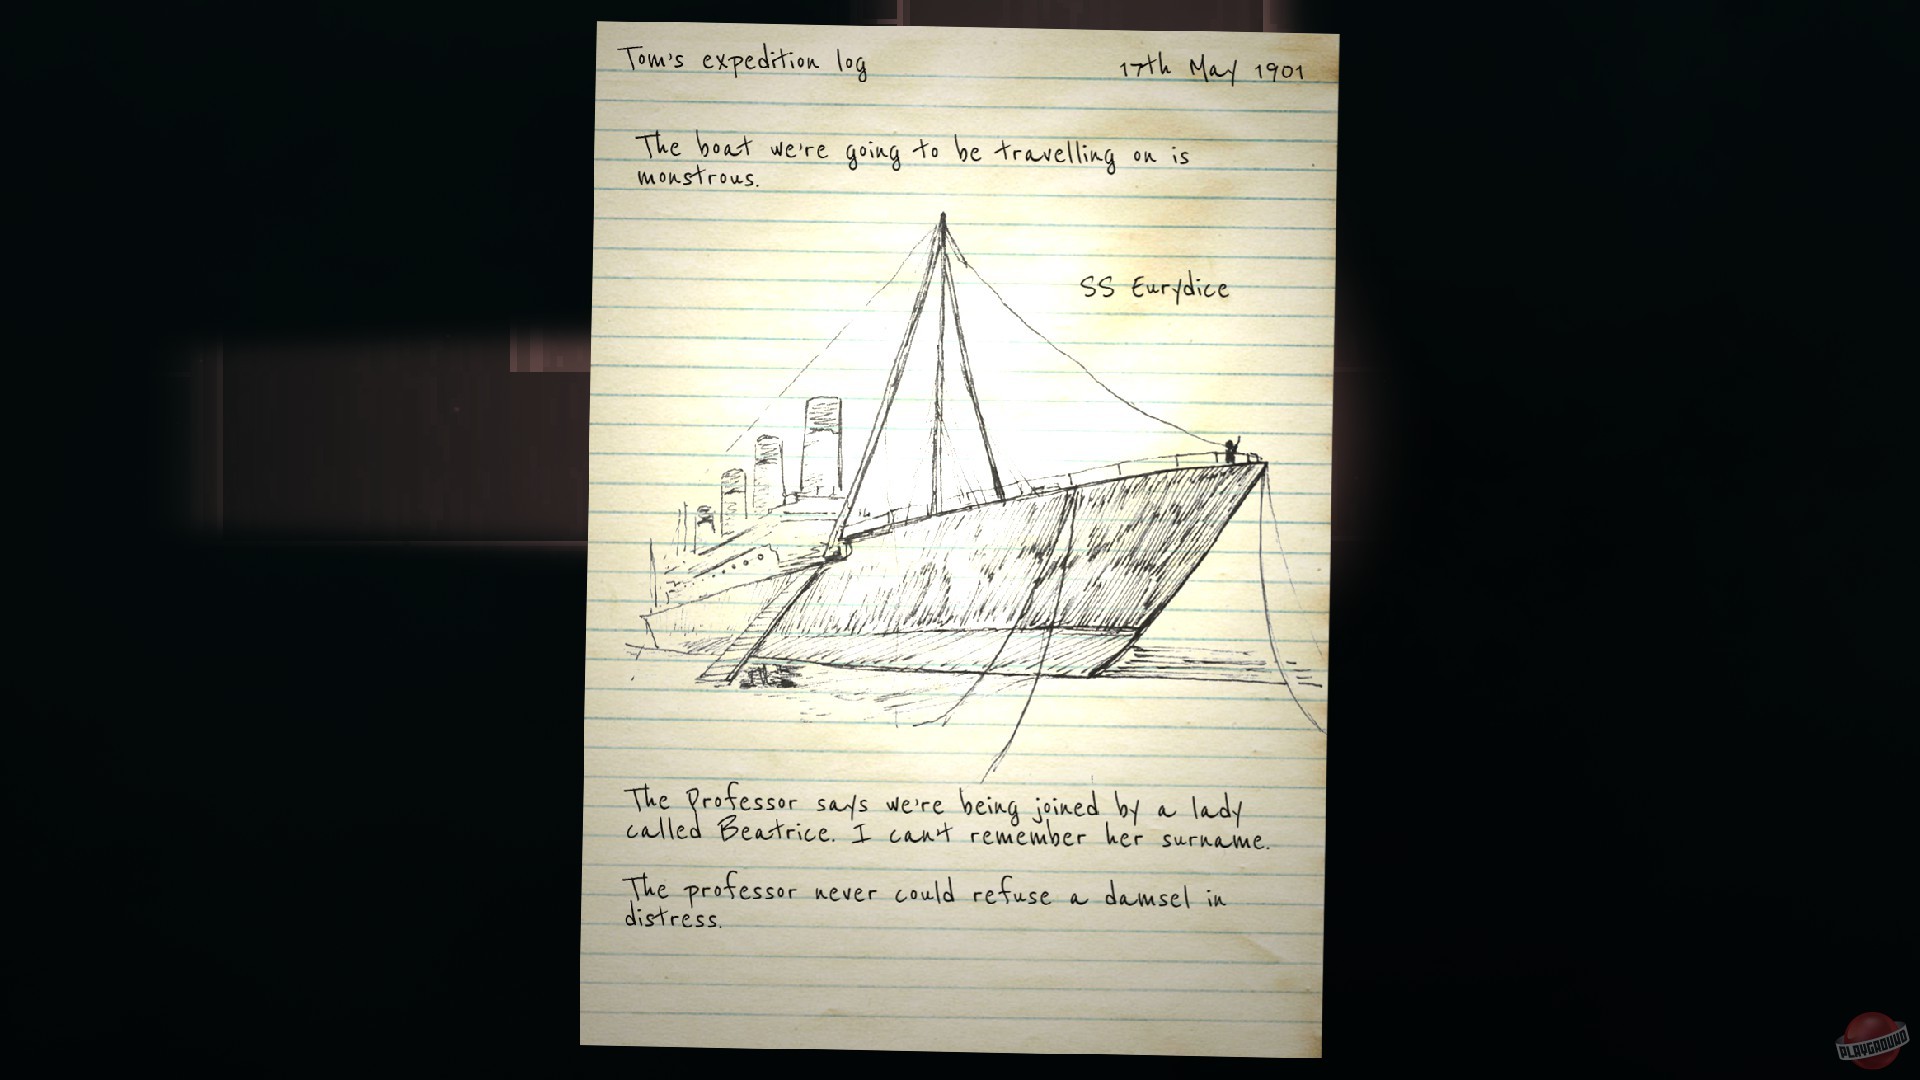 Tom's expedition log
17th May 1901
The boat we're going to be travelling on is
monstrous.
SS Eurydice
The Professor says we're being joined by a lady
called Beatrice. I can't remember her surname.
The professor never could refuse a damsel in
distress.
PLAYGROUND